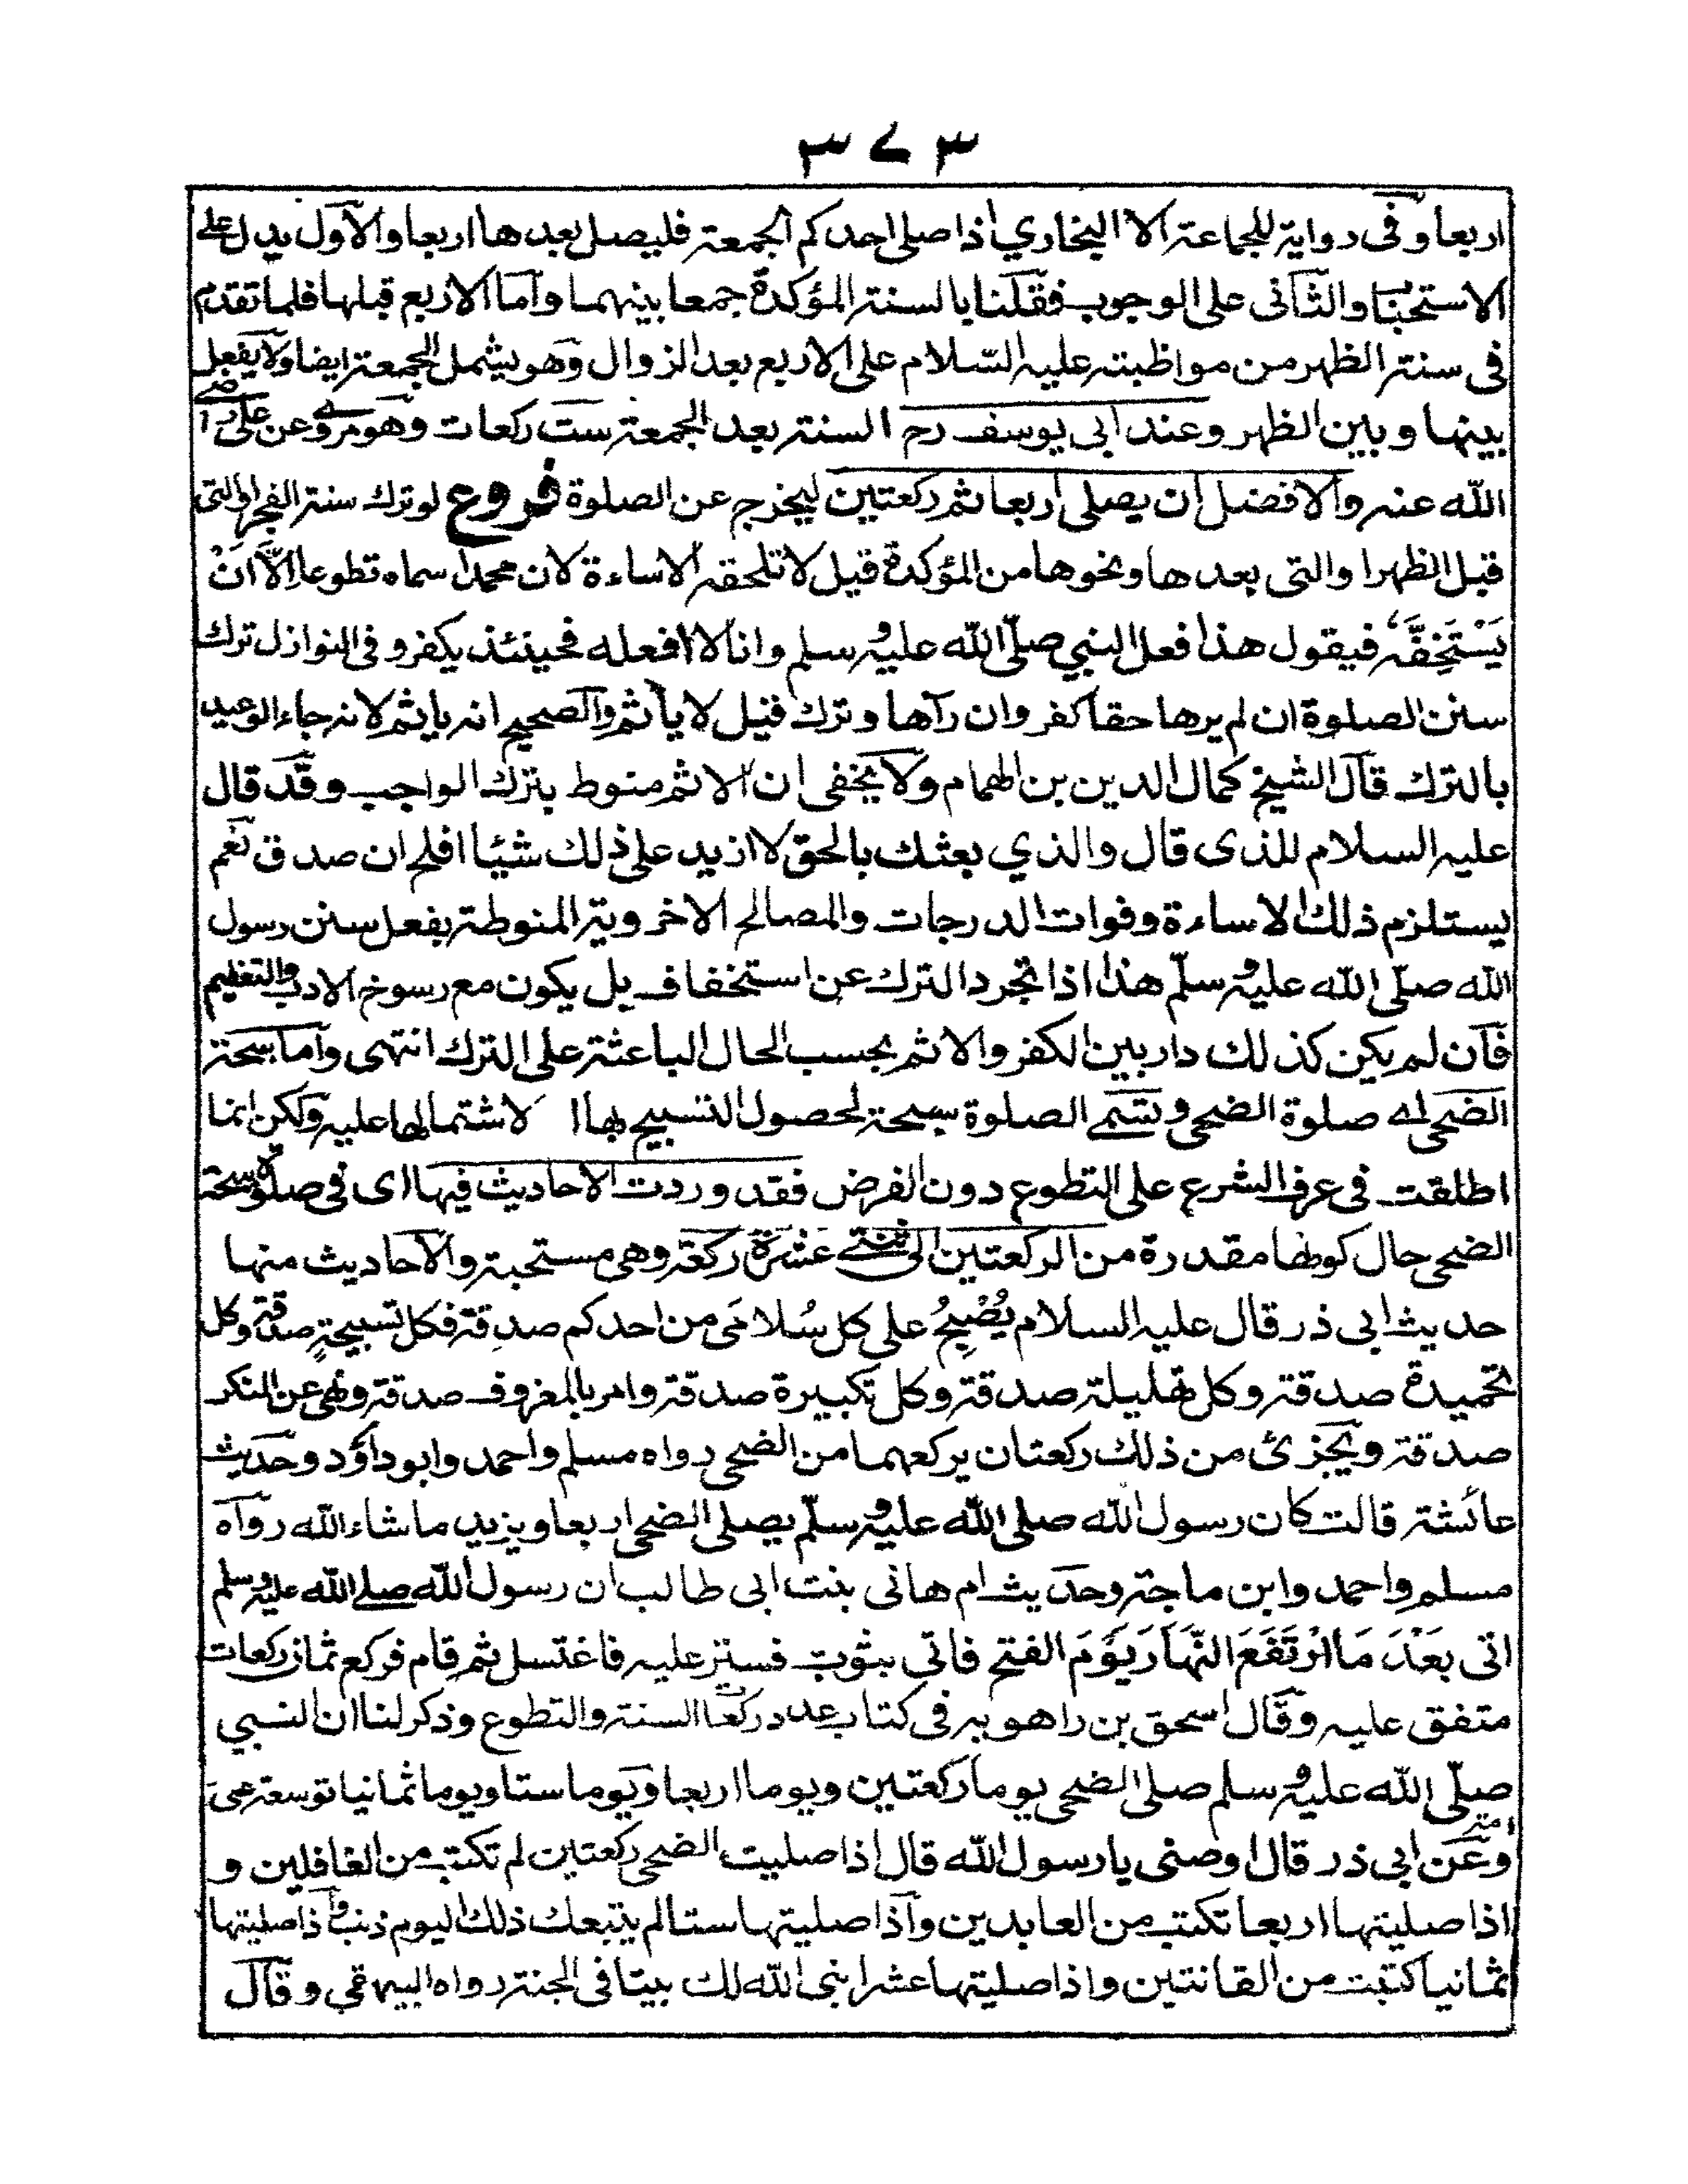 ٣٧٣
اربعا وفى رواية للجماعة الا البخاري اذا صلى احدكم الجمعة فليصل بعدها اربعا والاول يدل على
الاستحباب والثانى على الوجوب فقلنا بالسنة المؤكدة جمعا بينهما واما الاربع قبلها فلما تقدم
فى سنة الظهر من مواظبته عليه السلام على الاربع بعد الزوال وهو يشمل الجمعة ايضا ولا يفصل
بينها وبين الظهر وعند ابى يوسف رح السنة بعد الجمعة ست ركعات وهو مروى عن على رضى
الله عنه والافضل ان يصلى اربعا ثم ركعتين ليخرج عن الصلوة فروع لو ترك سنة الفجر او التى
قبل الظهر او التى بعدها ونحوها من المؤكدة قيل لا تلحقه الاساءة لان محمدا سماه تطوعا اِلَّا اَنْ
يَسْتَخِفَّهٗ فيقول هذا فعل النبي صلّى الله عليه وسلم وانا لا افعله فحينئذ يكفر وفى النوازل ترك
سنن الصلوة ان لم يرها حقا كفر وان رآها وترك قيل لا يأثم والصحيح انه ياثم لانه جاء الوعيد
بالترك قال الشيخ كمال الدين بن الهمام ولا يخفى ان الاثم منوط بترك الواجب وقد قال
عليه السلام للذى قال والذي بعثك بالحق لا ازيد على ذلك شيئا افلح ان صدق نعم
يستلزم ذلك الاساءة وفوات الدرجات والمصالح الاخروية المنوطة بفعل سنن رسول
الله صلّى الله عليه وسلّم هذا اذا تجرد الترك عن استخفاف بل يكون مع رسوخ الادب والتعظيم
فان لم يكن كذلك دار بين الكفر والاثم بحسب الحال الباعثة على الترك انتهى واما سبحة
الضحى اے صلوة الضحى وتسمى الصلوة سبحة لحصول التسبيح بها ا لاشتمالها عليه ولكن انما
اطلقت فى عرف الشرع على التطوع دون الفرض فقد وردت الاحاديث فيها اى فى صلوة سبحة
الضحى حال كونها مقدرة من الركعتين الى ثنتے عشرة ركعة وهى مستحبة والاحاديث منها
حديث ابى ذر قال عليه السلام يُصْبِحُ على كل سُلامَى من احدكم صدقة فكل تسبيحةٍ صدقة وكل
تحميدة صدقة وكل تهليلة صدقة وكل تكبيرة صدقة وامر بالمعروف صدقة ونهى عن المنكر
صدقة ويجزئ من ذلك ركعتان يركعهما من الضحى رواه مسلم واحمد وابو داؤد وحديث
عائشة قالت كان رسول الله صلى الله عليه وسلّم يصلى الضحى اربعا ويزيد ما شاء الله رواه
مسلم واحمد وابن ماجة وحديث ام هانى بنت ابى طالب ان رسول الله صلے الله عليه وسلم
اتى بَعْدَ مَا ارْتَفَعَ النَّهَارُ يَوْمَ الفتح فاتى بثوب فستر عليه فاغتسل ثم قام فركع ثمان ركعات
متفق عليه وقال اسحق بن راهويه فى كتاب عدد ركعات السنة والتطوع وذكر لنا ان النبي
صلّى الله عليه وسلم صلى الضحى يوما ركعتين ويوما اربعا ويوما ستا ويوما ثمانيا توسعة على
امته
وعن ابى ذر قال اوصنى يا رسول الله قال اذا صليت الضحى ركعتين لم تكتب من الغافلين و
اذا صليتها اربعا تكتب من العابدين واذا صليتها ستا لم يتبعك ذلك اليوم ذنب واذا صليتها
ثمانيا كتبت من القانتين واذا صليتها عشرا بنى الله لك بيتا فى الجنة رواه البيهقى وقال